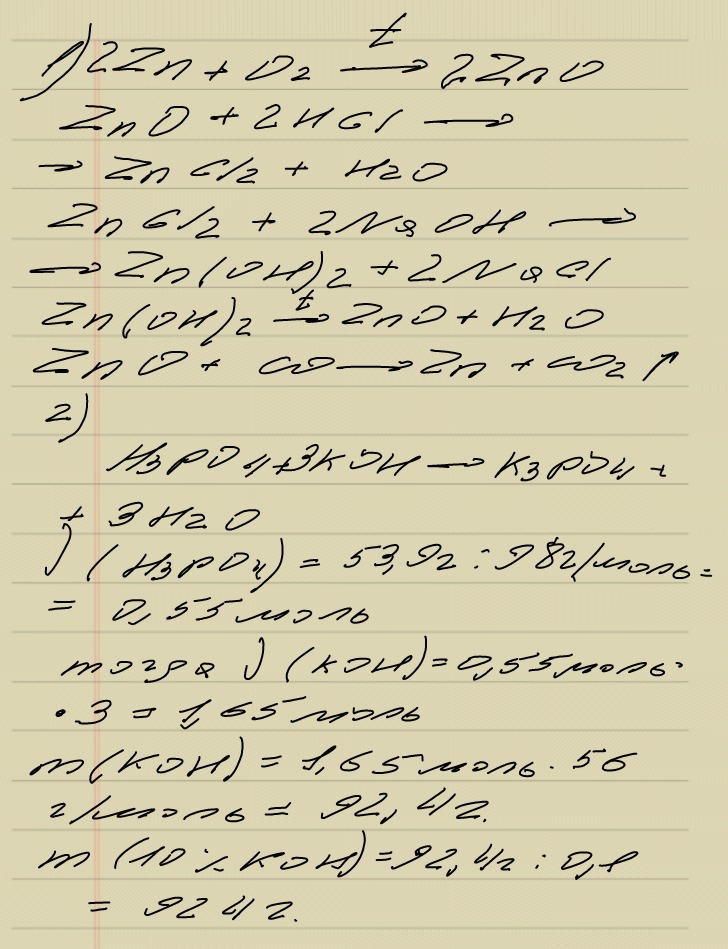 t
1) 2Zn + O2 → 2ZnO
ZnO + 2HCl →
→ ZnCl2 + H2O
ZnCl2 + 2NaOH →
→ Zn(OH)2 + 2NaCl
Zn(OH)2 t→ ZnO + H2O
ZnO + CO → Zn + CO2 ↑
2)
H3PO4 + 3KOH → K3PO4 +
+ 3H2O
ν (H3PO4) = 53,92 : 98г/моль =
= 0,55 моль
тогда ν (KOH) = 0,55 моль ·
· 3 = 1,65 моль
m(KOH) = 1,65 моль · 56
г/моль = 92,4г.
m (10% KOH) = 92,4г : 0,1
= 924г.